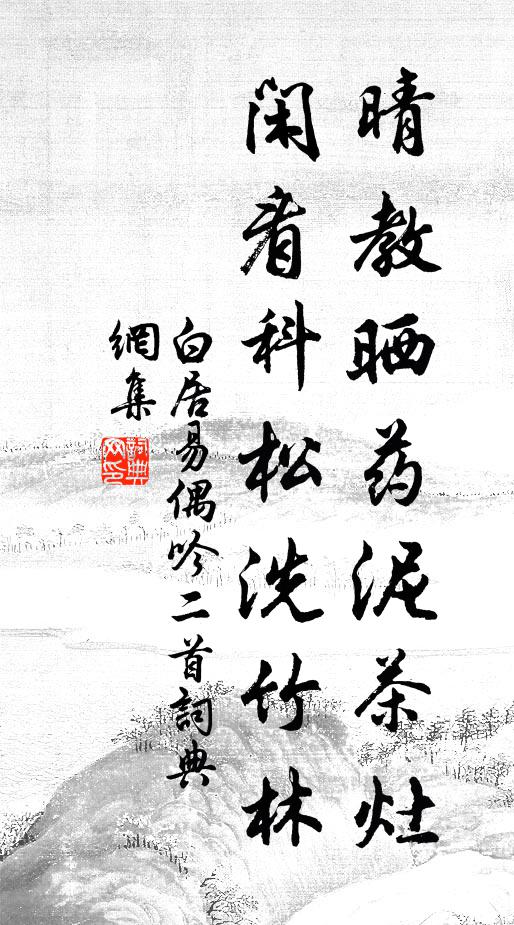 晴教晒药泥茶灶
闲看科松洗竹林
白居易偶吟二首詞典
網集
詞典
网印